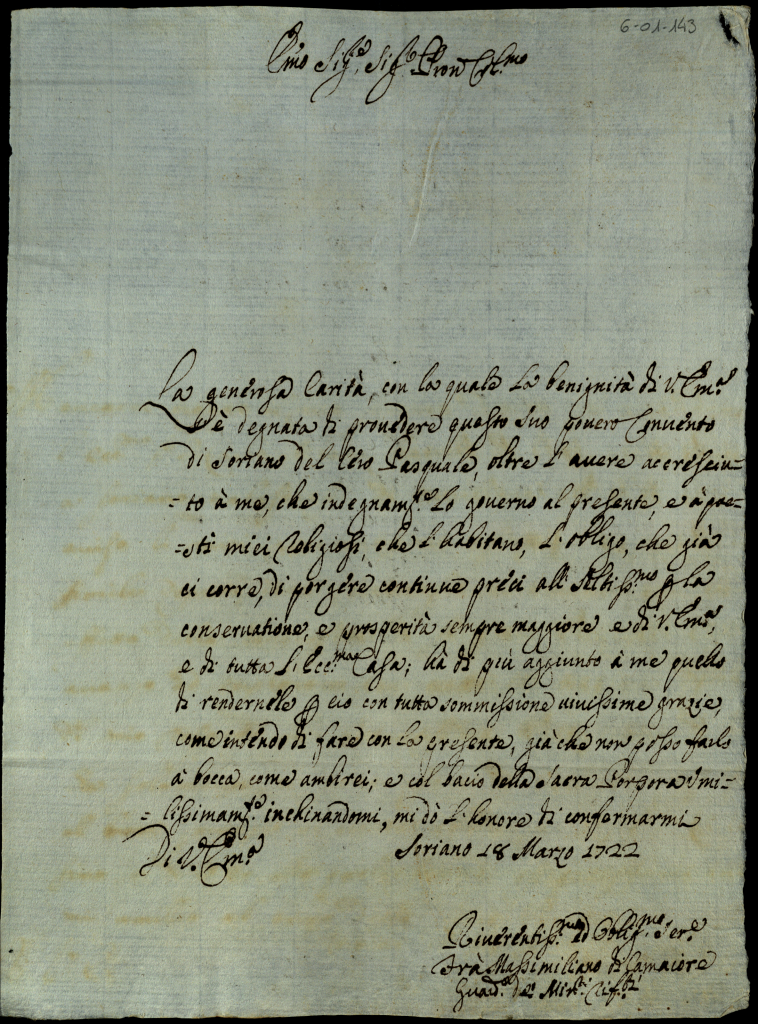 6-01-143
Em̃o Sig.re, Sig.re Pron Col.mo
La generosa Carità, con la quale la benignità di V. Em.a
s'è degnata di provedere questo suo povero Convento
di Soriano del Cero Pasquale, oltre l'avere accresciu=
=to à me, che indegnam.te lo governo al presente, e à que=
=sti miei Religiosi, che l'habitano, l'obligo, che già
ci corre, di porgere continue preci all'Altiss.mo p la
conservatione, e prosperità sempre maggiore e di V. Em.a,
e di tutta l'Ecc.ma Casa; hà di più aggiunto à me quello
di rendernele p ciò con tutta sommissione vivissime grazie,
come intendo di fare con la presente, già che non posso farlo
à bocca, come ambirei; e col bacio della Sacra Porpora umi=
=lissimam.te inchinandomi, mi dò l'honore di confermarmi
Di V. Em.a
Soriano 18 Marzo 1722
Riverentiss.mo ed Oblig.mo Ser.e
Frà Massimiliano di Camaiore
Guard.o de Min.ri Rif.ti